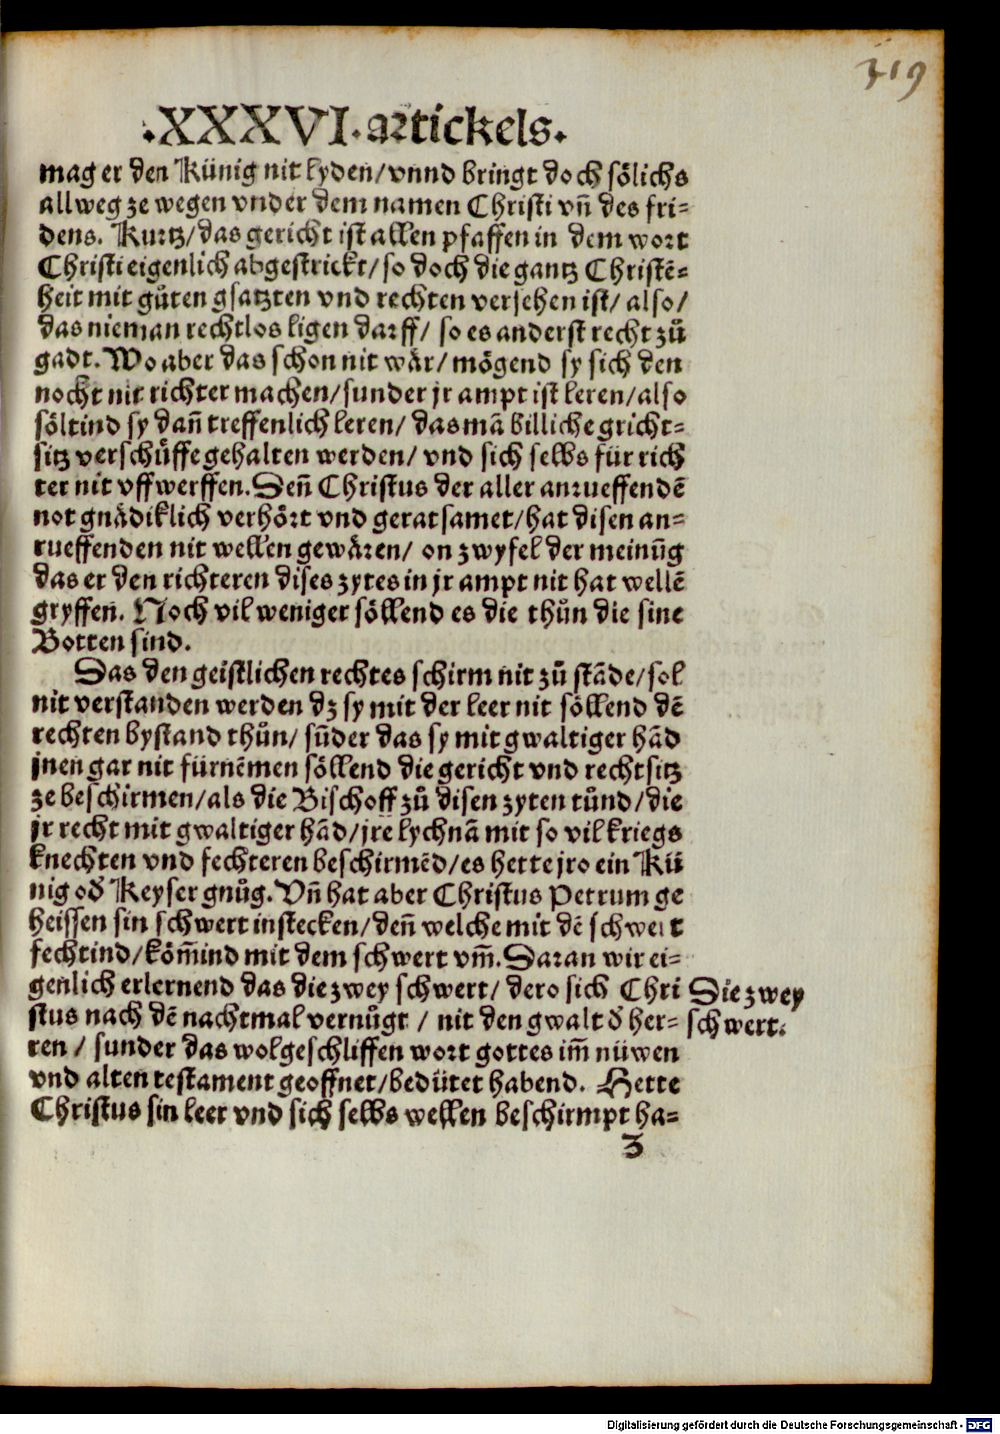 319
.XXXVI. artickels.
mag er den Künig nit lyden/ vnnd bringt doch sölichs
allweg ze wegen vnder dem namen Christi vñ des fri-
dens. Kurtz/ das gericht ist allen pfaffen in dem wort
Christi eigenlich abgestrickt/ so doch die gantz Christē-
heit mit gůten gsatzten vnd rechten versehen ist/ also/
das nieman rechtlos ligen darff/ so es anderst recht zů
gadt. Wo aber das schon nit wår/ mögend sy sich den
nocht nit richter machen/ sunder jr ampt ist leren/ also
söltind sy dañ treffenlich leren/ das mā billiche gricht-
sitz verschůffe gehalten werden/ vnd sich selbs für rich
ter nit vffwerffen. Deñ Christus der aller anrueffendē
not gnådiklich verhört vnd geratsamet/ hat disen an-
rueffenden nit wellen gewåren/ on zwyfel der meinūg
das er den richteren dises zytes in jr ampt nit hat wellē
gryffen. Noch vil weniger söllend es die thůn die sine
Botten sind.
Das den geistlichen rechtes schirm nit zů stāde/ sol
nit verstanden werden dz sy mit der leer nit söllend dē
rechten bystand thůn/ sūder das sy mit gwaltiger hād
jnen gar nit fürnēmen söllend die gericht vnd rechtsitz
ze beschirmen/ als die Bischoff zů disen zyten tůnd/ die
jr recht mit gwaltiger hād/ jrē lychnā mit so vil kriegs
knechten vnd fechteren beschirmēd/ es hette jro ein Kü
nig oď Keyser gnůg. Vñ hat aber Christus Petrum ge
heissen sin schwert instecken/ deñ welche mit dē schwert
fechtind/ köm̄ind mit dem schwert vm̄. Daran wir ei-
genlich erlernend das die zwey schwert/ dero sich Chri
stus nach dē nachtmal vernůgt / nit den gwalt ď her-
ren / sunder das wolgeschliffen wort gottes im̄ nüwen
vnd alten testament geoffnet/ bedütet habend. Hette
Christus sin leer vnd sich selbs wellen beschirmpt ha-
Die zwey
schwert.
Z
Digitalisierung gefördert durch die Deutsche Forschungsgemeinschaft - DFG